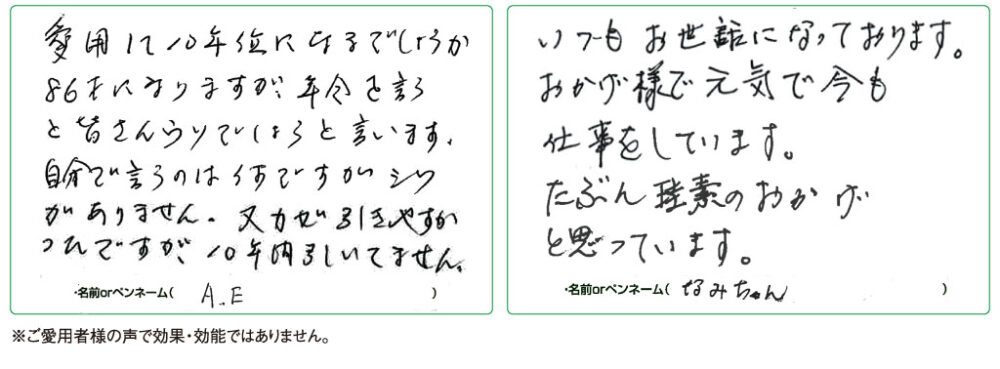 愛用して10年位になるでしょうか
86才になりますが、年令を言う
と皆さんうそでしょうと言います。
自分で言うのは何ですがシワ
がありません。又カゼ引きやすか
ったんですが、10年間引いてません。
・名前orペンネーム( A.E )
いつもお世話になっております。
おかげ様で元気で今も
仕事をしています。
たぶん珪素のおかげ
と思っています。
・名前orペンネーム( なみちゃん )
※ご愛用者様の声で効果・効能ではありません。